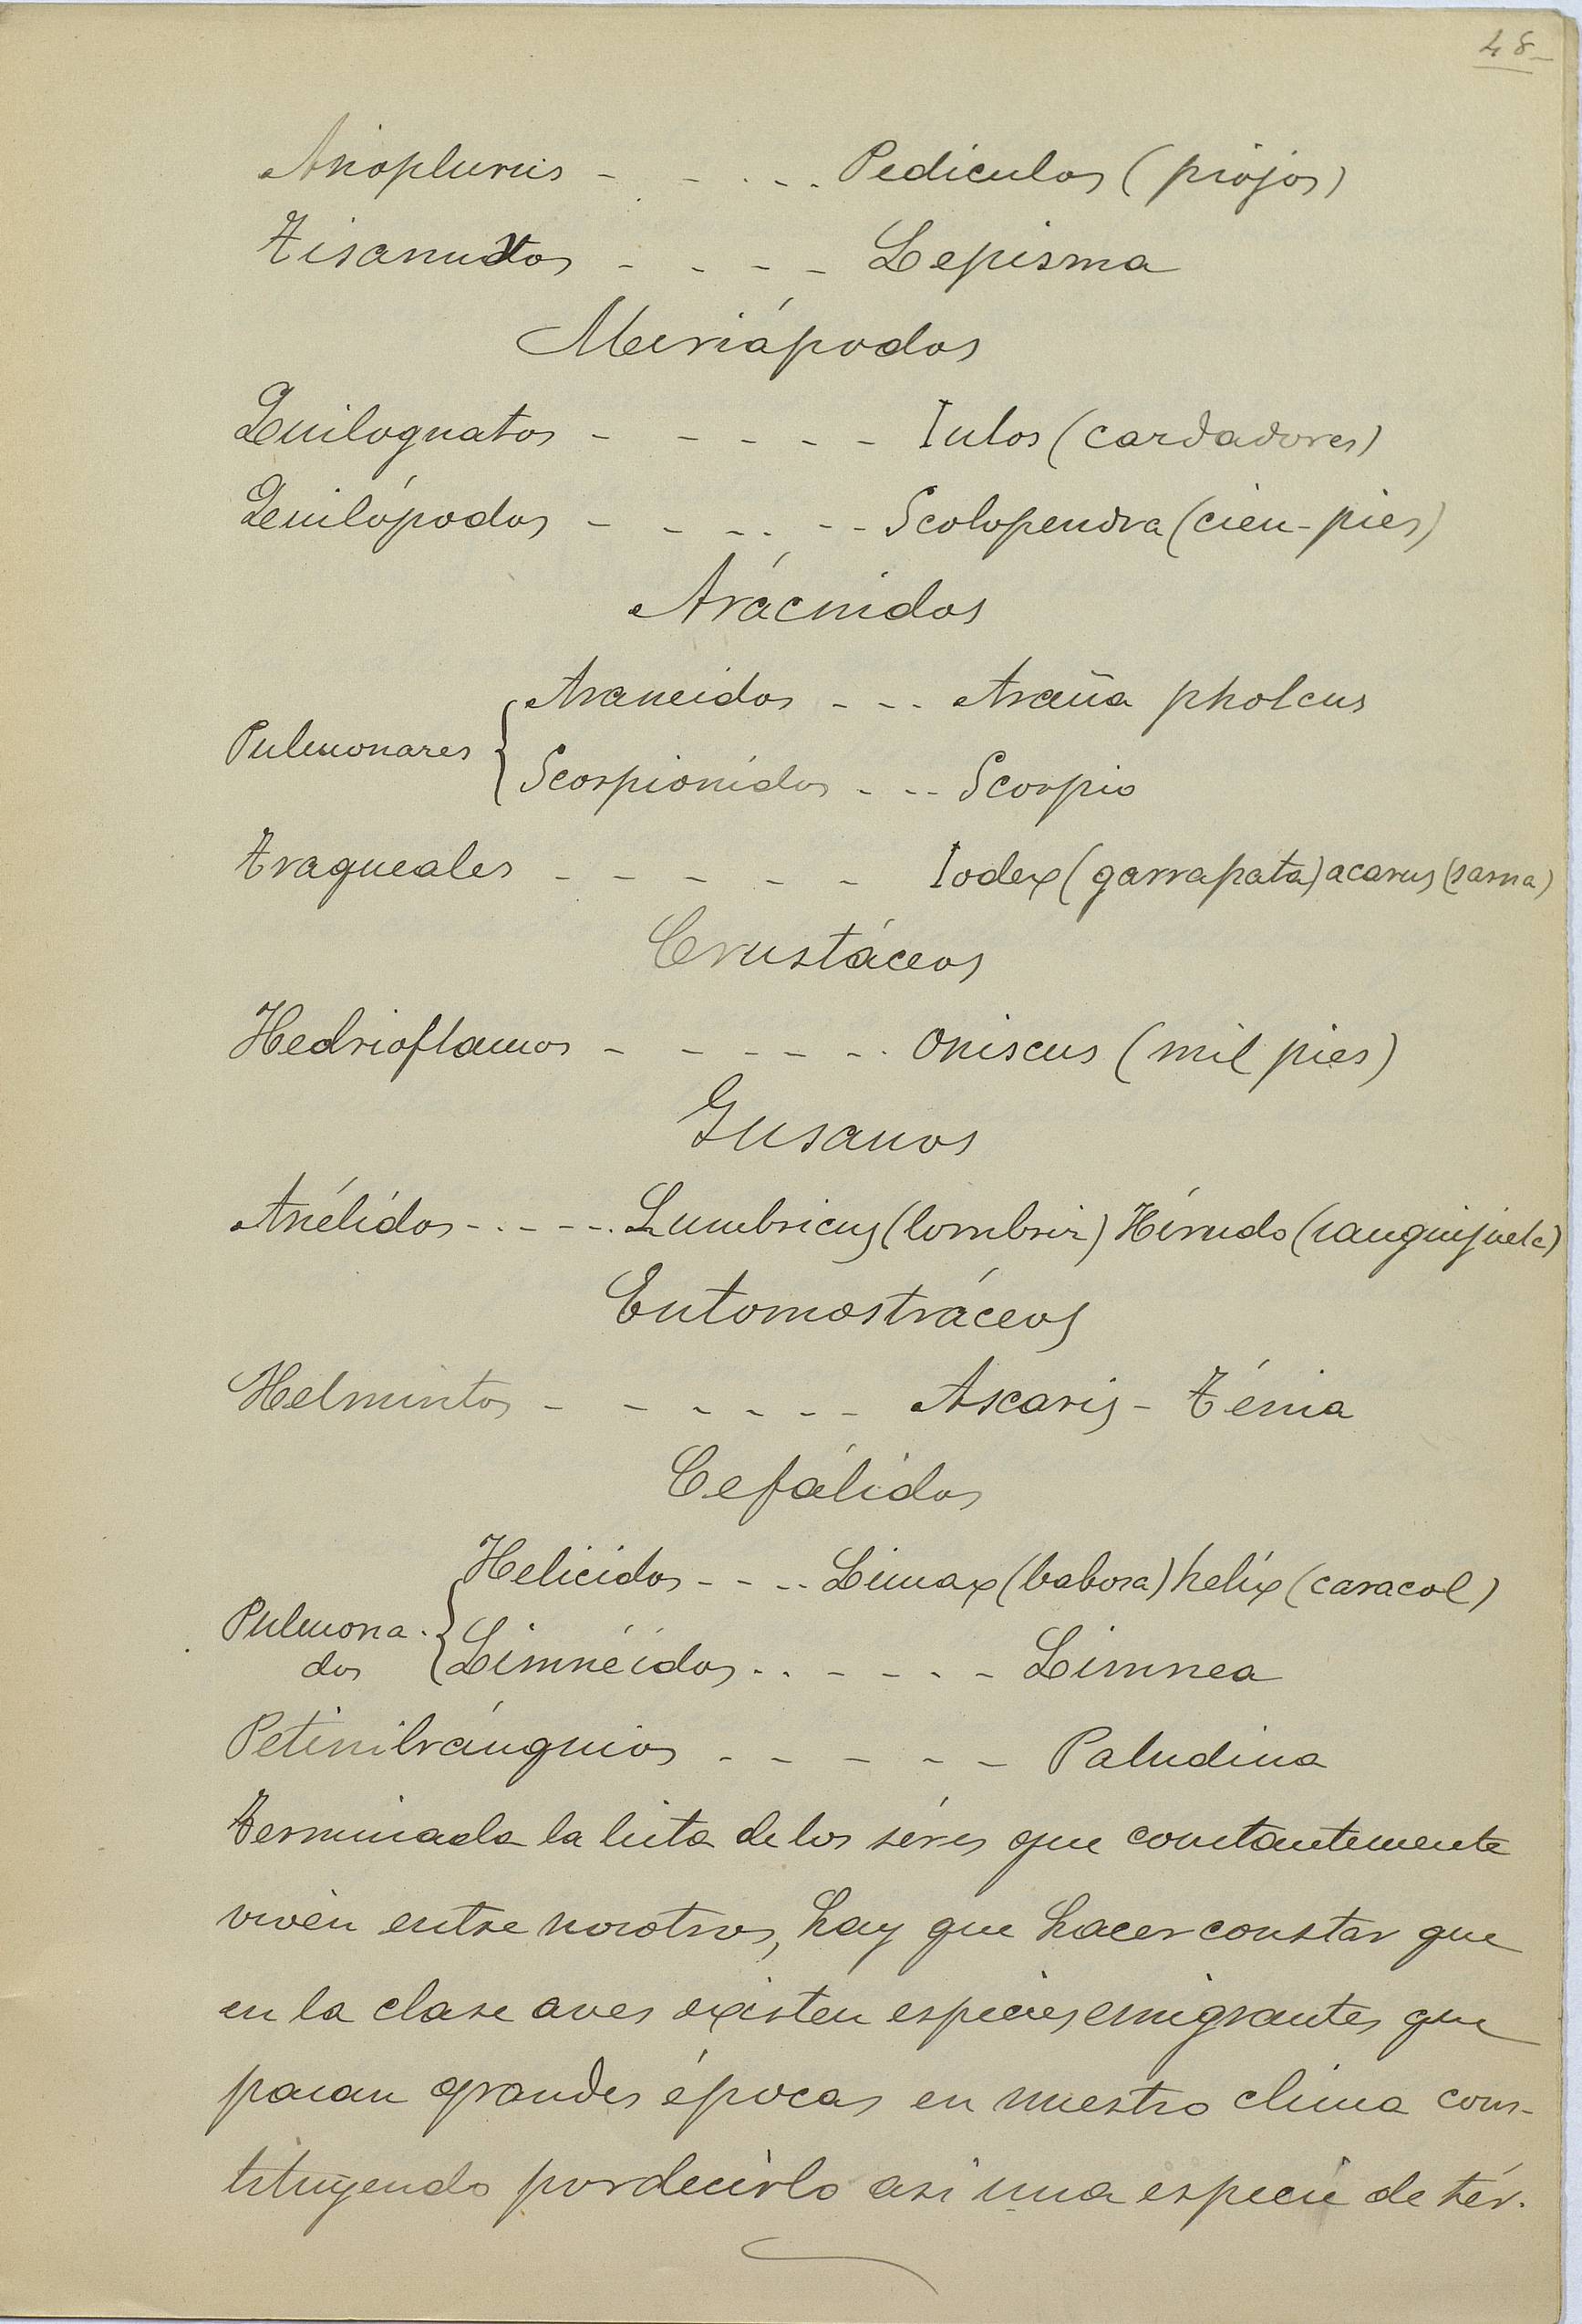 48
Anopluriis - - - - - Pediculos (piojos)
Tisanuxtos - - - - Lepisma
Meriápodos
Quilognatos - - - - - Iulos (cardadores)
Quilópodos - - - - - - Scolopendra (cien-pies)
Arácnidos
Araneidos - - - Araña pholcus
Pulmonares {
Scorpionidos - - - Scorpio
Traqueales - - - - - Iodex (garrapata) acarus (sarna)
Crustáceos
Hedrioftamos - - - - - - Oniscus (mil pies)
Gusanos
Anélidos - - - - - - Lumbricus (lombriz) Hírudo (sanguijuela)
Entomostráceos
Helmintos - - - - - - Ascaris - Ténia
Cefálidos
Helicidos - - - - Limax (babosa) helix (caracol)
Pulmona- {
dos Limnéidos - - - - - - Limnea
Petinibránquios - - - - - Paludina
Terminada la lista de los séres que constantemente
viven entre nosotros, hay que hacer constar que
en la clase aves existen especies emigrantes que
pasan grandes épocas en nuestro clima cons-
tituyendo por decirlo asi una especie de tér-